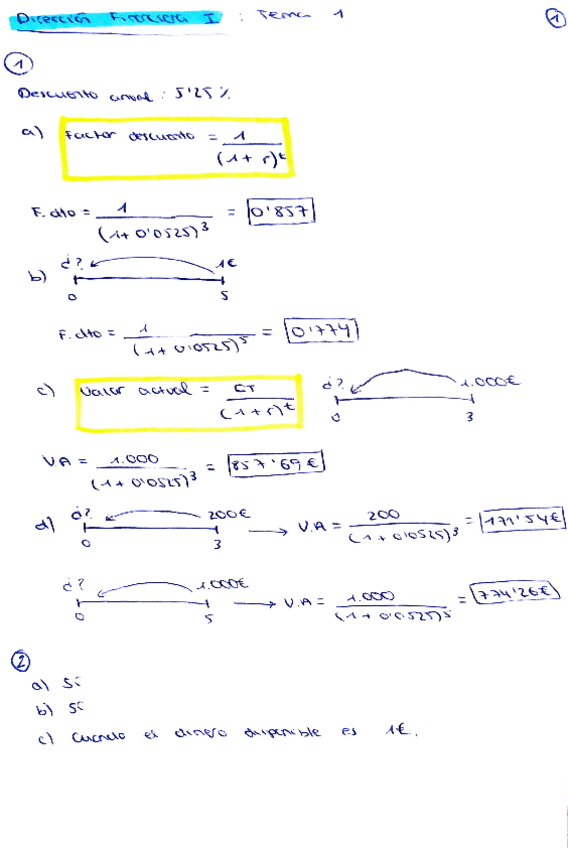 Dirección Financiera I : Tema 1
1
1
Descuento anual : 5'25 %
a) Factor descuento = 1 / (1+r)^t
F. dto = 1 / (1+0'0525)^3 = 0'857
b) ¿? 1€
0 5
F. dto = 1 / (1+0'0525)^5 = 0'774
c) Valor actual = CT / (1+r)^t ¿? 1.000€
0 3
VA = 1.000 / (1+0'0525)^3 = 857'69€
d) ¿? 200€ → V.A = 200 / (1+0'0525)^3 = 171'54€
0 3
¿? 1.000€ → V.A = 1.000 / (1+0'0525)^5 = 774'26€
0 5
2
a) Sí
b) Sí
c) Cuando el dinero disponible es 1€.